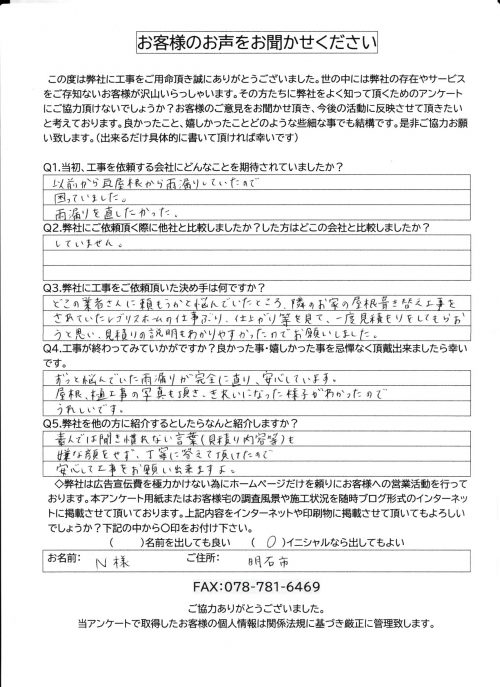 お客様のお声をお聞かせください
この度は弊社に工事をご用命頂き誠にありがとうございました。世の中には弊社の存在やサービス
をご存知ないお客様が沢山いらっしゃいます。その方たちに弊社をよく知って頂くためのアンケート
にご協力頂けないでしょうか？お客様のご意見をお聞かせ頂き、今後の活動に反映させて頂きたい
と考えております。良かったこと、嬉しかったことどのような些細な事でも結構です。是非ご協力お願
い致します。（出来るだけ具体的に書いて頂ければ幸いです）
Q1.当初、工事を依頼する会社にどんなことを期待されていましたか？
以前から瓦屋根から雨漏りしていたので
困っていました。
雨漏りを直したかった。
Q2.弊社にご依頼頂く際に他社と比較しましたか？した方はどこの会社と比較しましたか？
していません。
Q3.弊社に工事をご依頼頂いた決め手は何ですか？
どこの業者さんに頼もうかと悩んでいたところ、隣のお家の屋根葺き替え工事を
されていたレブリスホームの仕事ぶり、仕上がり等を見て、一度見積もりをしてもらお
うと思い、見積りの説明もわかりやすかったのでお願いしました。
Q4.工事が終わってみていかがですか？良かった事・嬉しかった事を忌憚なく頂戴出来ましたら幸い
です。
ずっと悩んでいた雨漏りが完全に直り、安心しています。
屋根、樋工事の写真も頂き、きれいになった様子がわかったので
うれしいです。
Q5.弊社を他の方に紹介するとしたらなんと紹介しますか？
素人では聞き慣れない言葉(見積り内容等)も
嫌な顔をせず、丁寧に答えて頂けたので
安心して工事をお願い出来ますよ。
◇弊社は広告宣伝費を極力かけない為にホームページだけを頼りにお客様への営業活動を行って
おります。本アンケート用紙またはお客様宅の調査風景や施工状況を随時ブログ形式のインターネッ
トに掲載させて頂いております。上記内容をインターネットや印刷物に掲載させて頂いてもよろしい
でしょうか？下記の中から〇印をお付け下さい。
（　　）名前を出しても良い　（　〇　）イニシャルなら出してもよい
お名前：　N様　　ご住所：　明石市
FAX:078-781-6469
ご協力ありがとうございました。
当アンケートで取得したお客様の個人情報は関係法規に基づき厳正に管理致します。